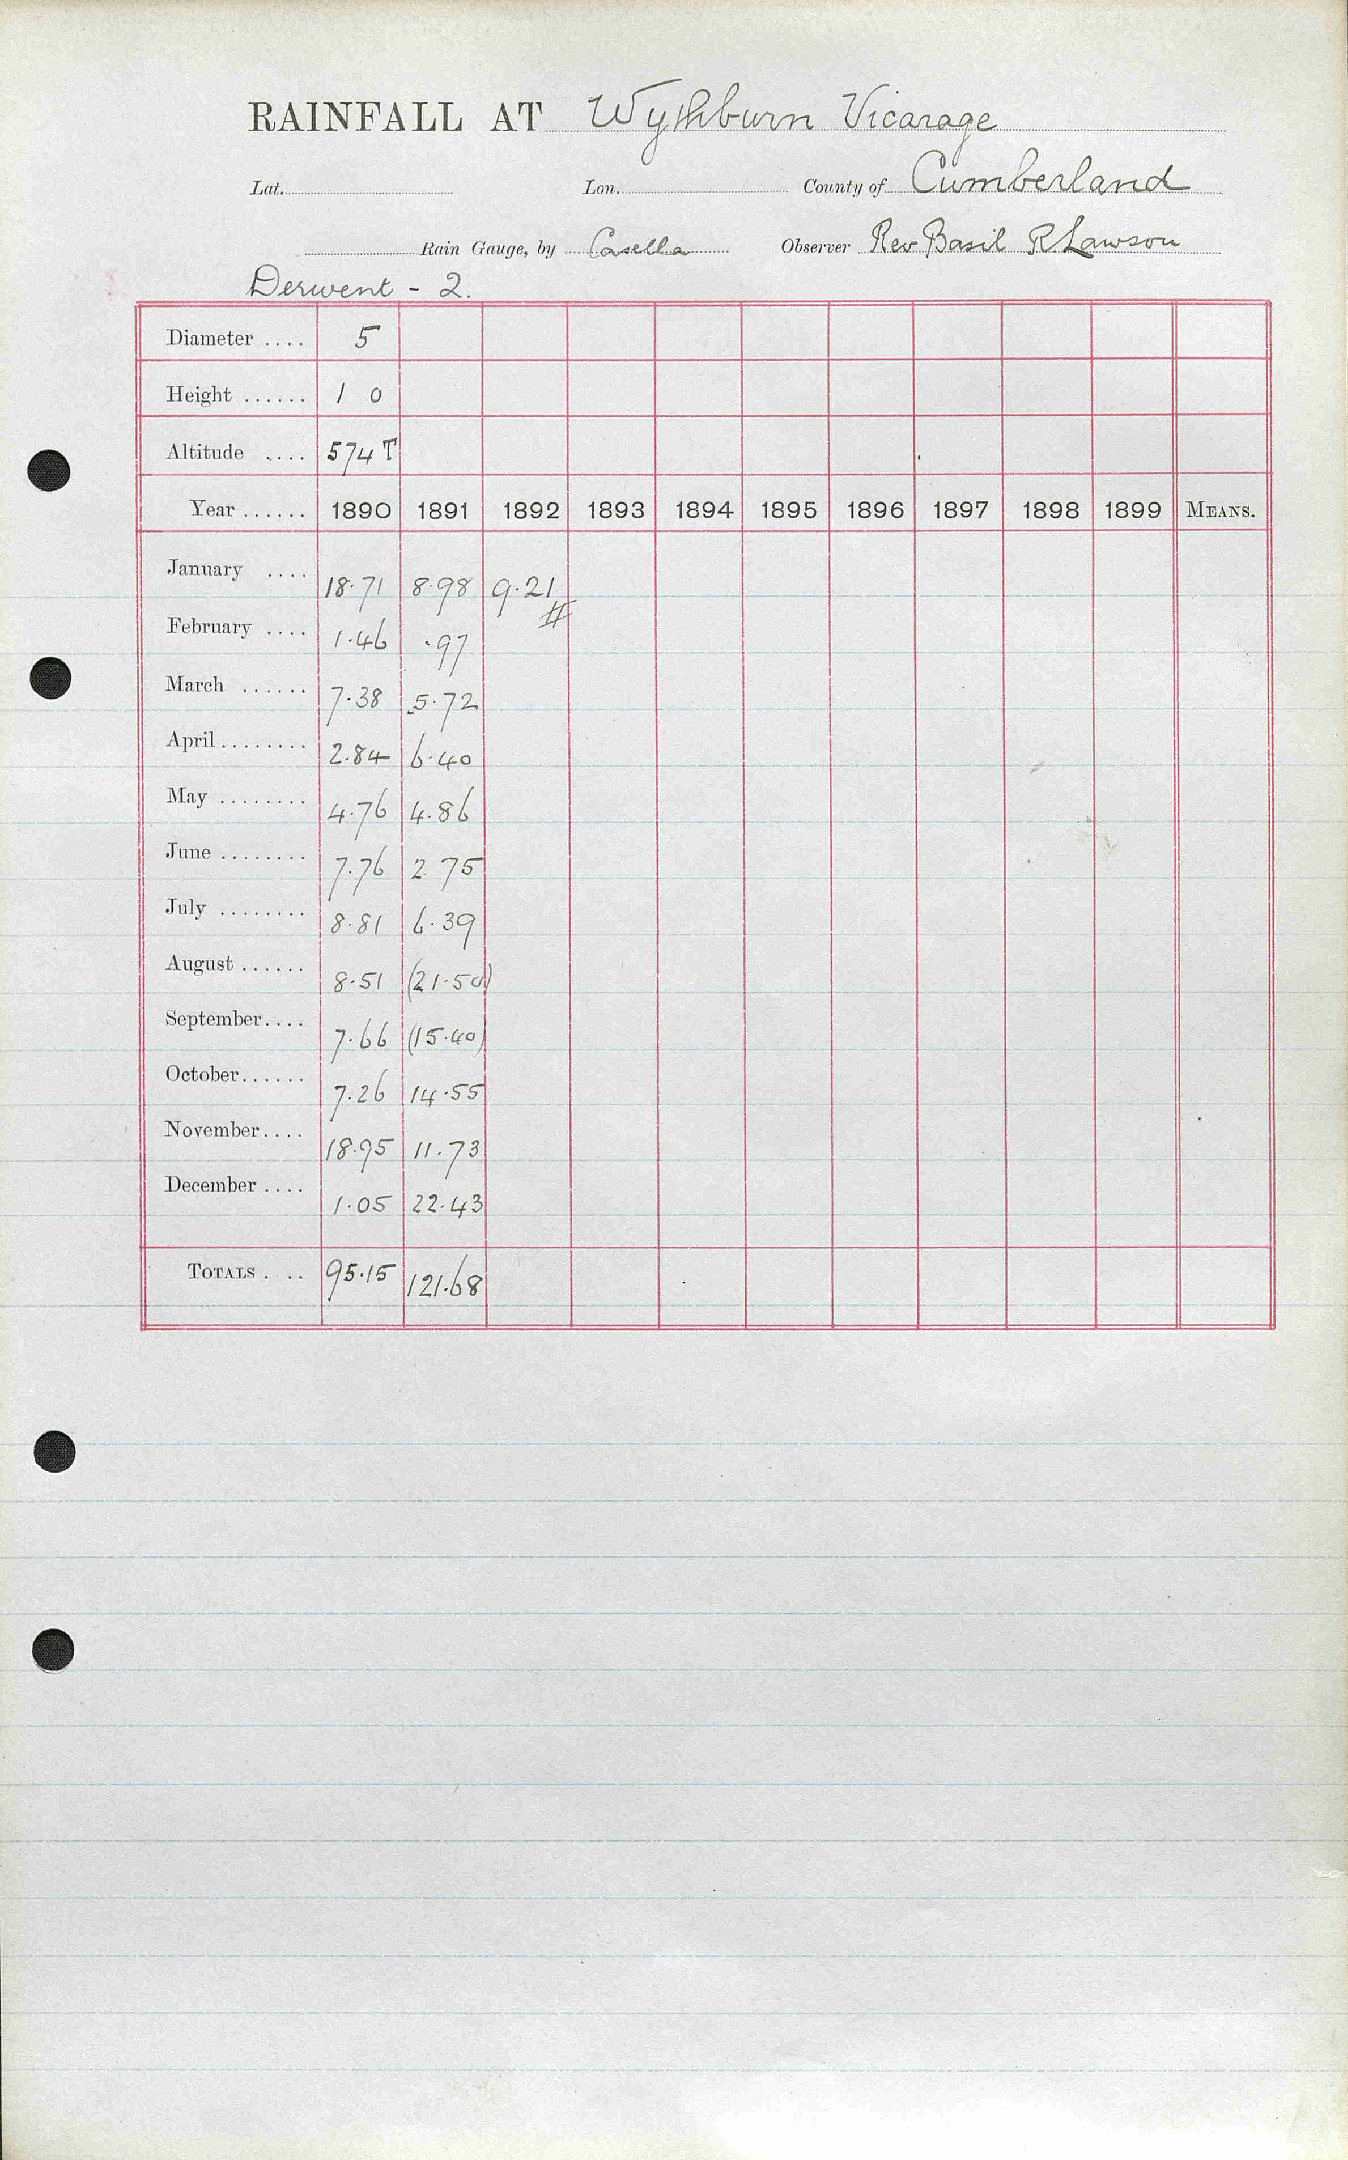 RAINFALL AT Wythburn Vicarage
Lat. Lon. County of Cumberland
Rain Gauge, by Casella Observer Rev Basil R Lawson
Derwent - 2.
Diameter .... 5
Height ...... 1 0
Altitude .... 574 T
Year ...... 1890 1891 1892 1893 1894 1895 1896 1897 1898 1899 MEANS.
January .... 18.71 8.98 9.21
February .... 1.46 .97 #
March ...... 7.38 5.72
April ........ 2.84 6.40
May ........ 4.76 4.86
June ........ 7.76 2.75
July ........ 8.81 6.39
August ...... 8.51 (21.50)
September.... 7.66 (15.40)
October...... 7.26 14.55
November.... 18.95 11.73
December .... 1.05 22.43
TOTALS . .. 95.15 121.68